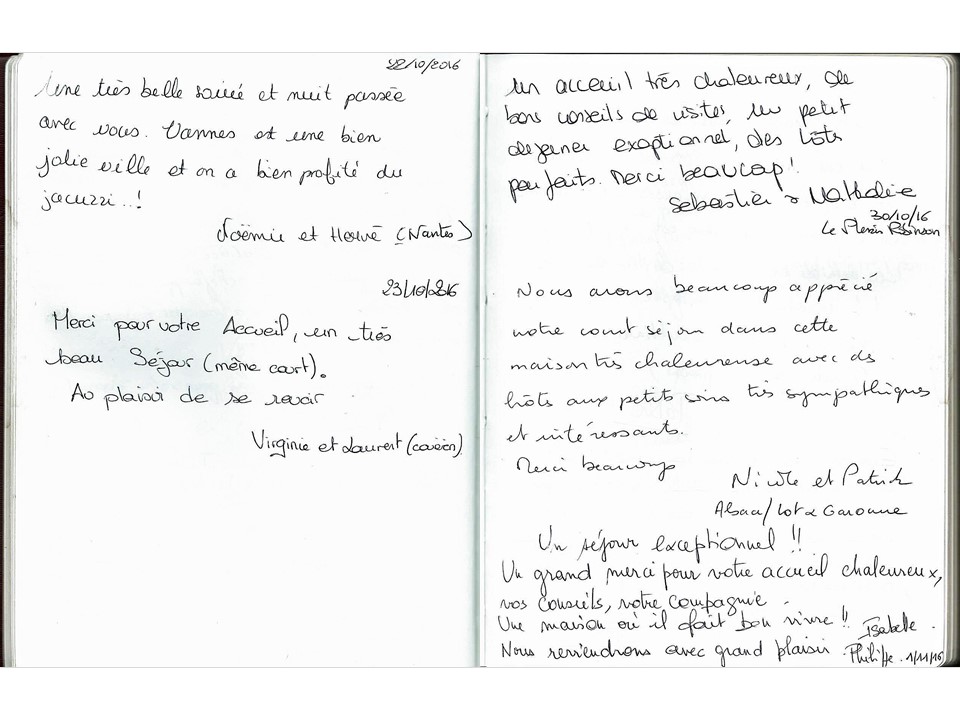 22/10/2016
Une très belle soirée et nuit passée
avec vous. Vannes est une bien
jolie ville et on a bien profité du
jacuzzi..!
Noëmie et Hervé (Nantes)
23/10/2016
Merci pour votre Accueil, un très
beau Séjour (même court).
Au plaisir de se revoir
Virginie et Laurent
Un acceuil très chaleureux, de
bons conseils de visites, un petit
dejeuner exeptionnel, des hôts
parfaits. Merci beaucoup!
Sebastien & Nathalie
30/10/16
Le Plessis Robinson
Nous avons beaucoup apprécié
notre court séjour dans cette
maison très chaleureuse avec des
hôts aux petits soins très sympathiques
et intéressants.
Merci beaucoup
Nicole et Patrick
Alsace/Lot & Garonne
Un séjour exceptionnel !!
Un grand merci pour votre accueil chaleureux,
vos conseils, votre compagnie.
Une maison où il fait bon vivre !! Isabelle.
Nous reviendrons avec grand plaisir. Philippe. 1/11/16